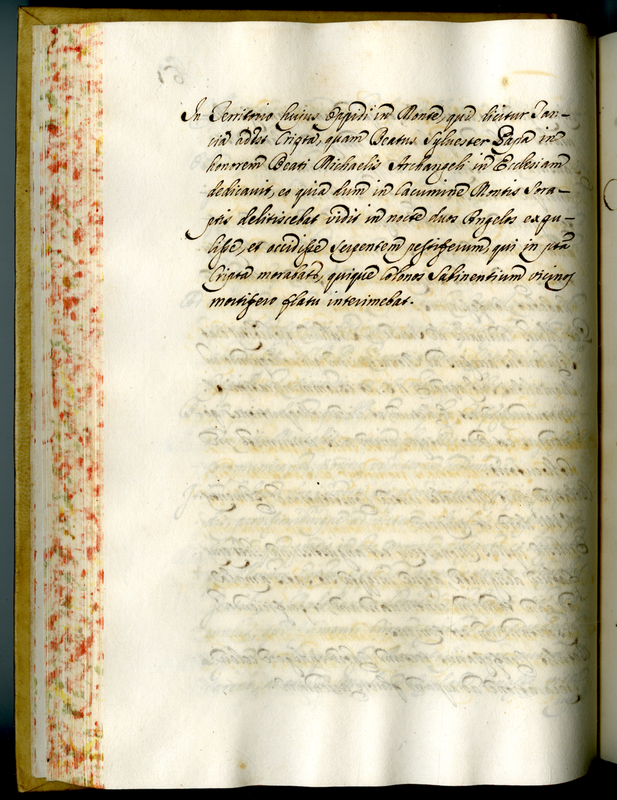 In Territorio huius Oppidi in Monte, qui dicitur Tan-
cia adest Cripta, quam Beatus Sylvester Papa in
honorem Beati Michaelis Archangeli in Ecclesiam
dedicavit, eo quia dum in Cacumine Montis Sora-
ctis delitiscebat vidit in nocte duos Angelos expu-
lisse, et occidisse Serpentem pestiferum, qui in pta
Cripta morabatr, quique Colonos Sabinentium vicinos
mortifero flatu interimebat.